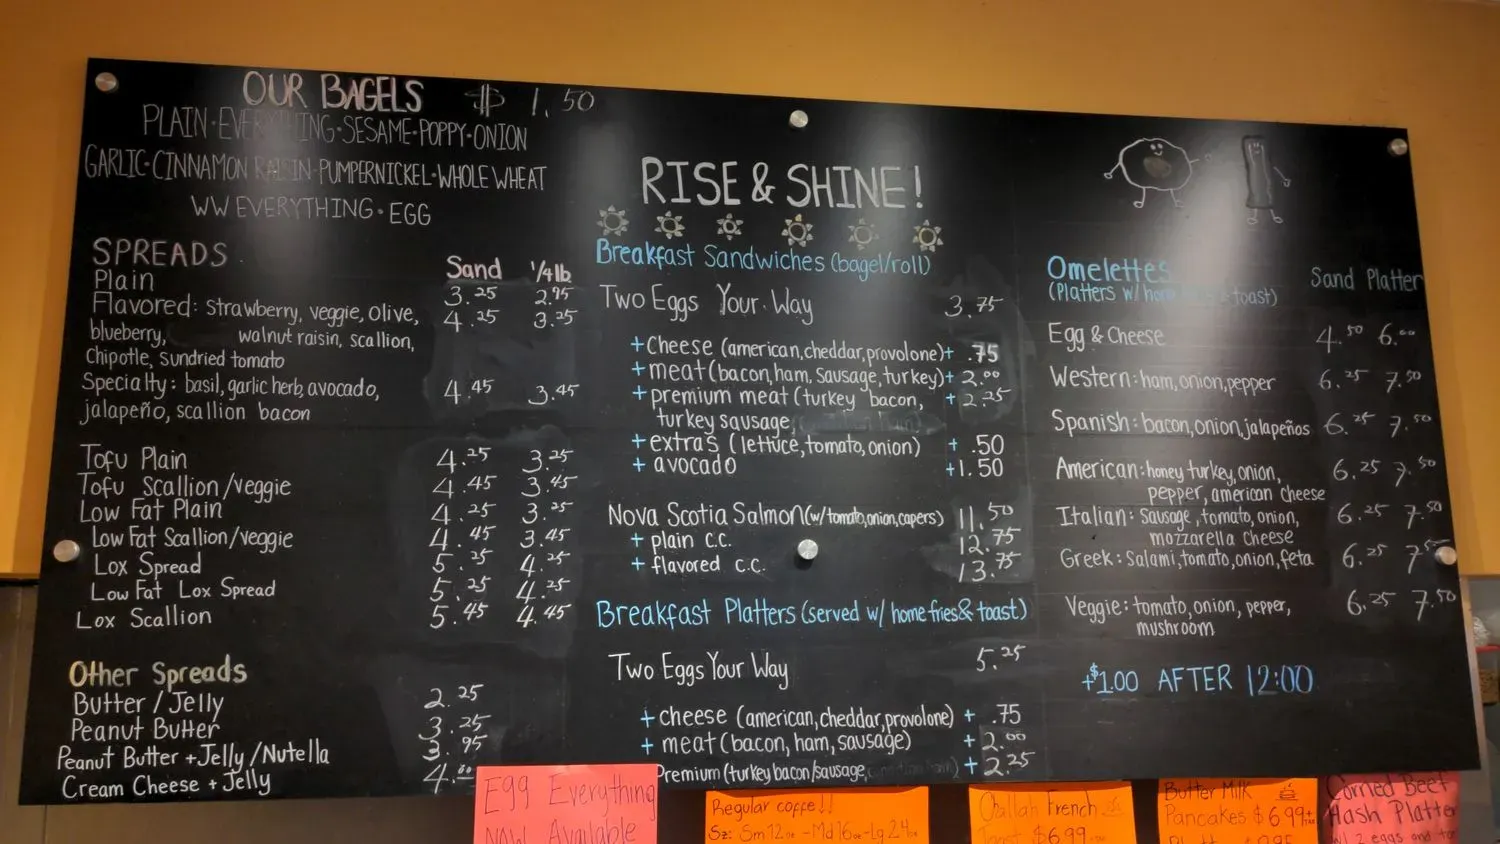 OUR BAGELS $ 1.50
PLAIN·EVERYTHING·SESAME·POPPY·ONION
GARLIC·CINNAMON RAISIN·PUMPERNICKEL·WHOLE WHEAT
WW EVERYTHING·EGG
SPREADS Sand 1/4 lb
Plain 3.25 2.95
Flavored: strawberry, veggie, olive, 4.25 3.25
blueberry, walnut raisin, scallion,
chipotle, sundried tomato
Specialty: basil, garlic herb, avocado, 4.45 3.45
jalapeño, scallion bacon
Tofu Plain 4.25 3.25
Tofu Scallion/veggie 4.45 3.45
Low Fat Plain 4.25 3.25
Low Fat Scallion/veggie 4.45 3.45
Lox Spread 5.25 4.25
Low Fat Lox Spread 5.25 4.25
Lox Scallion 5.45 4.45
Other Spreads
Butter/Jelly 2.25
Peanut Butter 3.25
Peanut Butter + Jelly/Nutella 3.95
Cream Cheese + Jelly 4.00
RISE & SHINE!
Breakfast Sandwiches (bagel/roll)
Two Eggs Your Way 3.75
+ Cheese (american, cheddar, provolone) + .75
+ meat (bacon, ham, sausage, turkey) + 2.00
+ premium meat (turkey bacon, + 2.25
turkey sausage,
+ extras (lettuce, tomato, onion) + .50
+ avocado +1.50
Nova Scotia Salmon (w/ tomato, onion, capers) 11.50
+ plain c.c. 12.75
+ flavored c.c. 13.75
Breakfast Platters (served w/ home fries & toast)
Two Eggs Your Way 5.25
+ cheese (american, cheddar, provolone) + .75
+ meat (bacon, ham, sausage) + 2.00
Premium (turkey bacon/sausage, + 2.25
Omelettes Sand Platter
(Platters w/ home fries & toast)
Egg & Cheese 4.50 6.00
Western: ham, onion, pepper 6.25 7.50
Spanish: bacon, onion, jalapeños 6.25 7.50
American: honey turkey, onion, 6.25 7.50
pepper, american cheese
Italian: Sausage, tomato, onion, 6.25 7.50
mozzarella cheese
Greek: Salami, tomato, onion, feta 6.25 7.50
Veggie: tomato, onion, pepper, 6.25 7.50
mushroom
+$1.00 AFTER 12:00
Egg Everything
NOW Available
Regular coffe!!
Sz: Sm 12oz - Md 16oz - Lg 24oz
Challah French
Toast $6.99
Butter Milk
Pancakes $6.99
Corned Beef
Hash Platter
w/ 2 eggs and